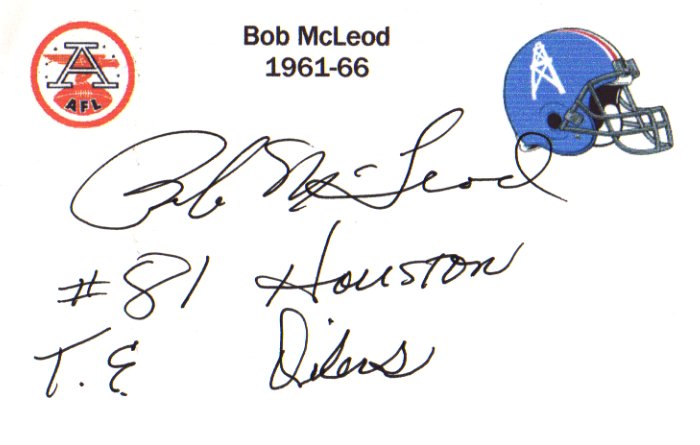 Bob McLeod
1961-66
A
AFL
Bob McLeod
#81 Houston
T.E Oilers